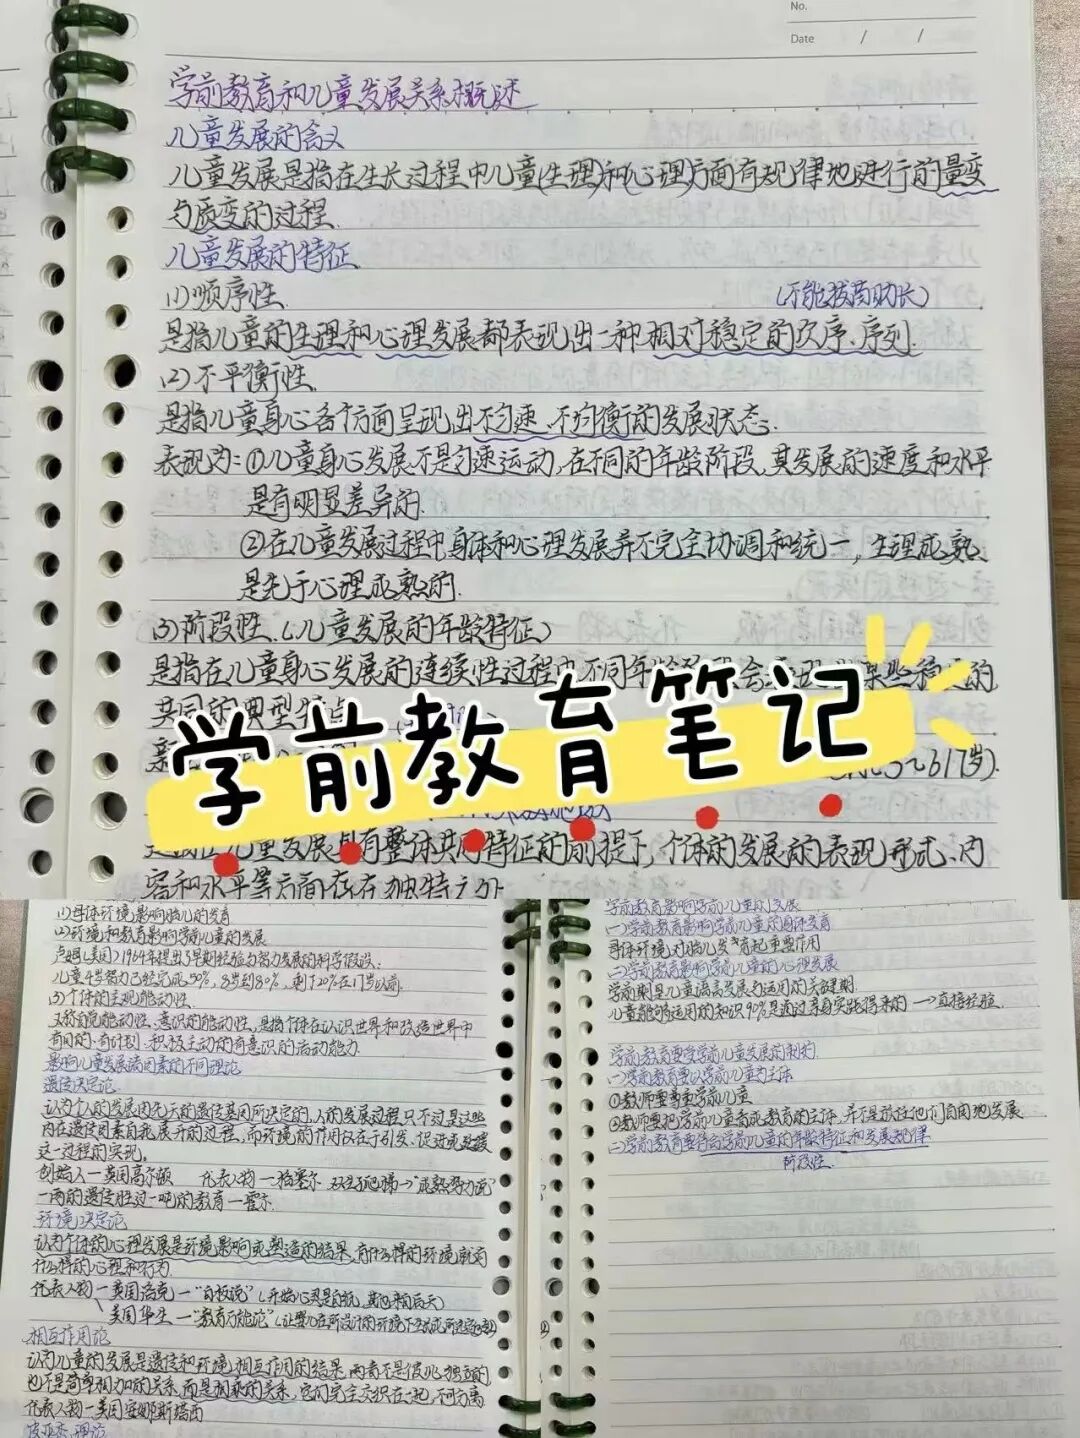 No.
Date / /
学前教育和儿童发展关系概述
儿童发展的含义
儿童发展是指在生长过程中儿童(生理)和(心理)方面有规律地进行的量变
与质变的过程.
儿童发展的特征
(1)顺序性. (不能拔苗助长)
是指儿童的生理和心理发展都表现出一种相对稳定的次序、序列.
(2)不平衡性.
是指儿童身心各个方面呈现出不匀速、不均衡的发展状态.
表现为:①儿童身心发展不是匀速运动,在不同的年龄阶段,其发展的速度和水平
是有明显差异的.
②在儿童发展过程中身体和心理发展并不完全协调和统一,生理成熟
是先于心理成熟的.
(3)阶段性.(儿童发展的年龄特征)
是指在儿童身心发展的连续性过程中不同年龄阶段会
的
共同的典型特点
学前教育笔记
6 17岁).
儿童发展具有整体共同特征的前提下,个体的发展的表现形式、内
容和水平等方面存在独特之处
(1)母体环境影响胎儿的发育
(2)环境和教育影响学前儿童的发展
卢姆(美国)1964年提出了早期经验与智力发展的科学假设:
儿童4岁智力已经完成50%,8岁到80%,剩下20%在17岁以前.
(3)个体的主观能动性.
又称自觉能动性、意识的能动性,是指个体在认识世界和改造世界中
有目的、有计划、积极主动的有意识的活动能力.
影响儿童发展诸因素的不同理论
遗传决定论
认为个人的发展由先天的遗传基因所决定的,人的发展过程只不过是这些
内在遗传因素自我展开的过程,而环境的作用仅在于引发、促进或延缓
这一过程的实现.
创始人—英国高尔顿 代表人物—格塞尔 双生子爬梯—"成熟势力说"
一两的遗传胜过一吨的教育—霍尔
环境决定论
认为个体的心理发展是环境影响或塑造的结果,有什么样的环境就有
什么样的心理和行为.
代表人物—英国洛克—"白板说"
美国华生—"教育万能论"
相互作用论
认为儿童的发展是遗传和环境相互作用的结果,两者不是彼此独立的
也不是简单相加的关系,而是相乘的关系,它们完全交织在一起,不可分离
代表人物—美国安娜斯塔西
学前教育影响学前儿童的发展
(一)学前教育影响学前儿童的身体发育
母体环境对胎儿发育起重要作用
(二)学前教育影响学前儿童的心理发展
学前期是儿童语言发展与运用的关键期
儿童能够运用的知识90%是通过亲身实践得来的—>直接经验.
学前教育要受学前儿童发展的制约.
(一)学前教育要以学前儿童为主体
①教师要尊重学前儿童
②教师要把学前儿童看成教育的主体,并不是放任他们自由地发展.
(二)学前教育要符合学前儿童的年龄特征和发展规律
阶段性.